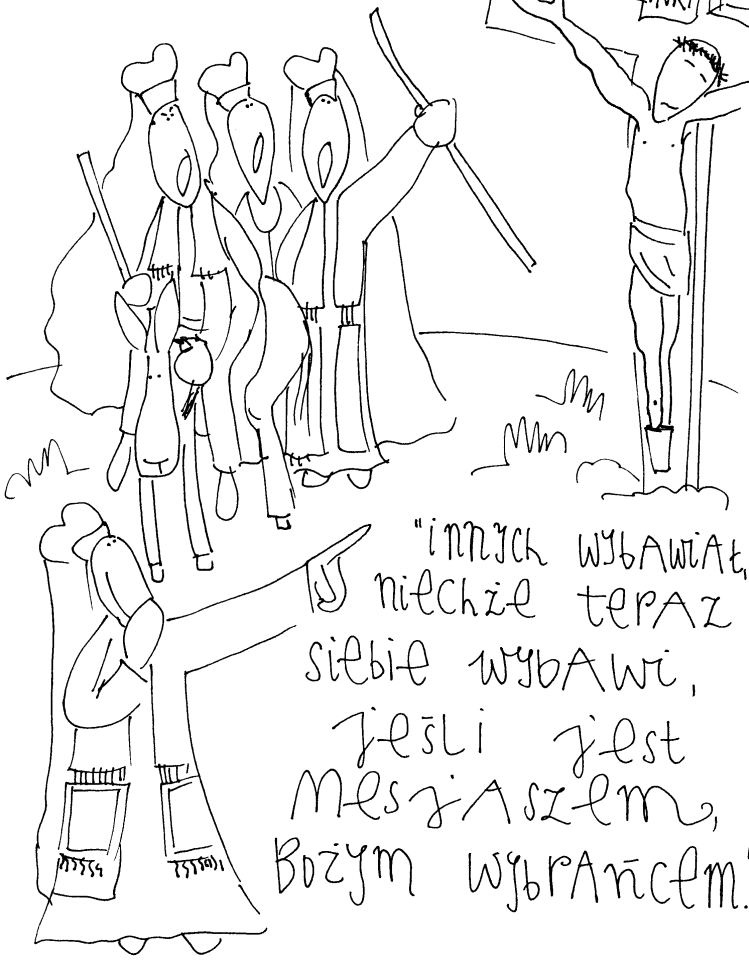 "innych wybAwiAł,
niechże terAz
siebie wybAwi,
jeśli jest
MesjAszem,
Bożym wybrAńcem."